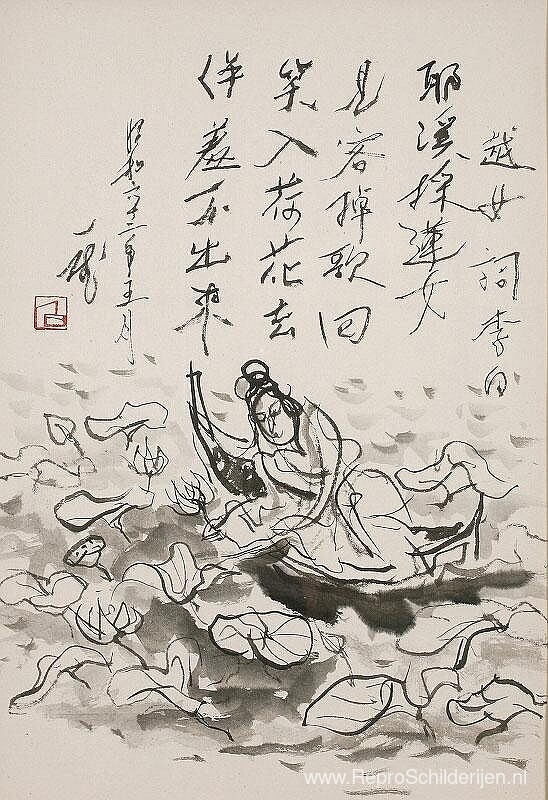 越女詞 李白
耶溪採蓮女
見客棹歌回
笑入荷花去
佯羞不出來
昭和六十二年五月
www.ReproSchilderijen.nl